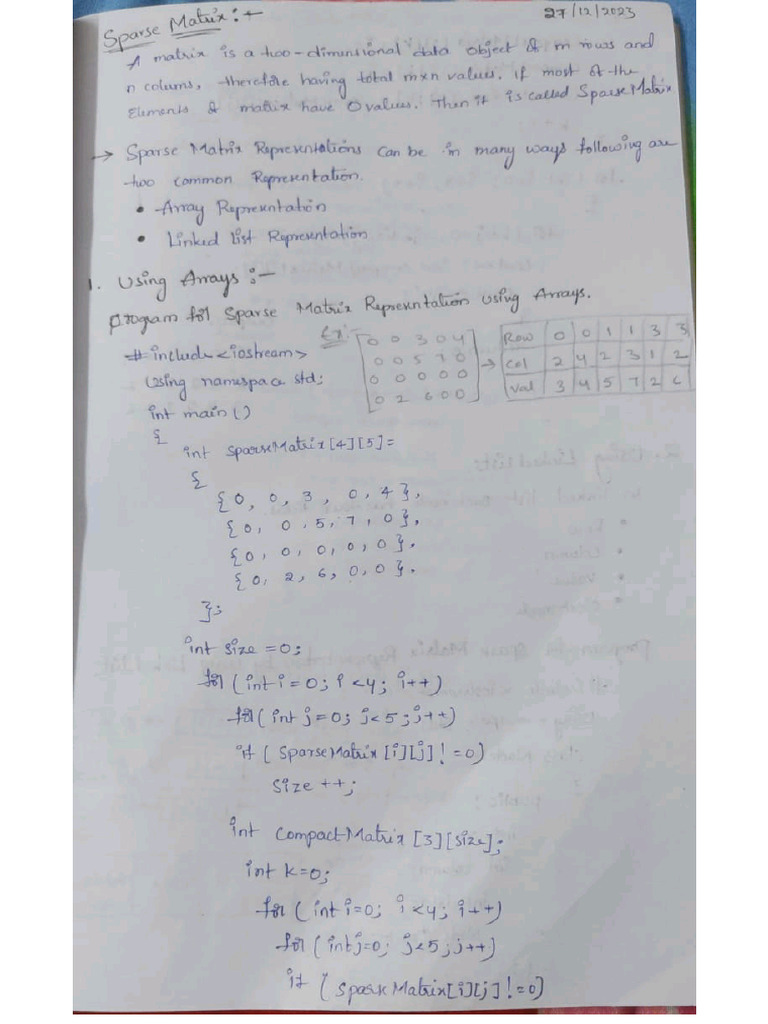 Sparse Matrix :-
27/12/2023
A matrix is a two-dimensional data object of m rows and
n colums, therefore having total mxn values. if most of the
Elements of matrix have 0 values. Then it is called Sparse Matrix
→ Sparse Matrix Representations can be in many ways following are
two common Representation.
• Array Representation
• Linked list Representation
1. Using Arrays :-
Program for Sparse Matrix Representation using Arrays.
Ex:-
0 0 3 0 4
0 0 5 7 0
0 0 0 0 0
0 2 6 0 0
→
Row 0 0 1 1 3 3
Col 2 4 2 3 1 2
Val 3 4 5 7 2 6
# include <iostream>
Using namespace std;
int main ()
{
int SparseMatrix [4] [5] =
{
{0, 0, 3, 0, 4},
{0, 0, 5, 7, 0},
{0, 0, 0, 0, 0},
{0, 2, 6, 0, 0}.
};
int size = 0;
for (int i = 0; i < 4; i++)
for (int j = 0; j < 5; j++)
if (SparseMatrix [i][j] != 0)
Size ++;
int CompactMatrix [3] [size];
int k=0;
for (int i=0; i < 4; i++)
for (int j=0; j < 5; j++)
if (SparseMatrix[i][j] != 0)